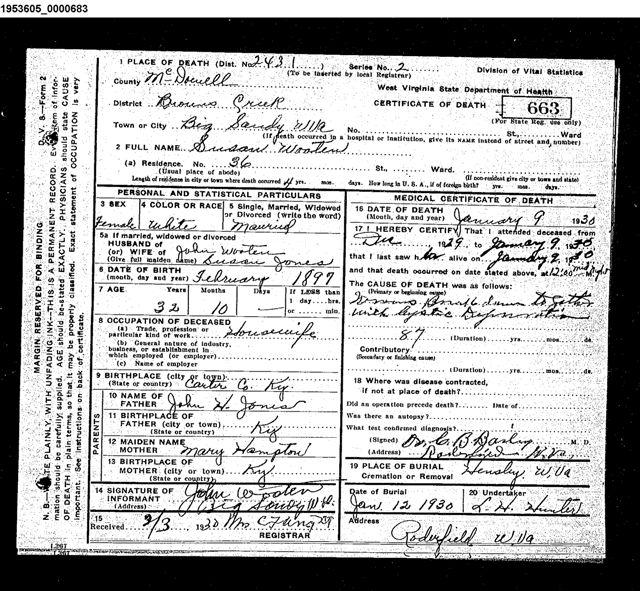 1953605_0000683
1 PLACE OF DEATH (Dist. No. 2431) Series No. 2
(To be inserted by local Registrar) Division of Vital Statistics
County McDowell
West Virginia State Department of Health
District Browns Creek
CERTIFICATE OF DEATH 663
(For State Reg. use only)
Town or City Big Sandy W Va No. St., Ward
(If death occurred in a hospital or institution, give its NAME instead of street and number)
2 FULL NAME Susan Wooten
(a) Residence. No. 36 St., Ward.
(Usual place of abode) (If non-resident give city or town and state)
Length of residence in city or town where death occurred 4 yrs. mos. days. How long in U. S. A., if of foreign birth? yrs. mos. days.
PERSONAL AND STATISTICAL PARTICULARS
3 SEX 4 COLOR OR RACE 5 Single, Married, Widowed
or Divorced (write the word)
Female White Married
5a If married, widowed or divorced
HUSBAND OF
(or) WIFE OF John Wooten
(Give full maiden name) Susan Jones
6 DATE OF BIRTH
(month, day and year) February 1897
7 AGE Years Months Days If LESS than
1 day....hrs.
or......min.
32 10 —
8 OCCUPATION OF DECEASED
(a) Trade, profession or
particular kind of work Housewife
(b) General nature of industry,
business, or establishment in
which employed (or employer)
(c) Name of employer
9 BIRTHPLACE (city or town)
(State or country) Carter Co. Ky.
PARENTS
10 NAME OF
FATHER John H Jones
11 BIRTHPLACE OF
FATHER (city or town)
(State or country) Ky
12 MAIDEN NAME
MOTHER Mary Hampton
13 BIRTHPLACE OF
MOTHER (city or town)
(State or country) Ky.
14 SIGNATURE OF
INFORMANT John Wooten
(Address) Big Sandy W Va.
15
Received 2/3 1930 Mrs C
REGISTRAR
MEDICAL CERTIFICATE OF DEATH
16 DATE OF DEATH
(Month, day and year) January 9 1930
17 I HEREBY CERTIFY That I attended deceased from
Dec 1929 to January 9, 1930
that I last saw her alive on January 9 1930
and that death occurred on date stated above, at 12:00 mid night
THE CAUSE OF DEATH was as follows:
(Primary or beginning cause)
with Cystic Degeneration
87
(Duration) yrs. mos. ds.
Contributory
(Secondary or finishing cause)
(Duration) yrs. mos. ds.
18 Where was disease contracted,
if not at place of death?
Did an operation precede death? Date of
Was there an autopsy?
What test confirmed diagnosis?
(Signed) Dr. C B M. D.
(Address) Roderfield W. Va.
19 PLACE OF BURIAL
Cremation or Removal Hensley W. Va
Date of Burial 20 Undertaker
Jan 12 1930 L. H. Hunter
Address
Roderfield W. Va
D. V. S.—Form 2
MARGIN RESERVED FOR BINDING
N. B.—WRITE PLAINLY, WITH UNFADING INK—THIS IS A PERMANENT RECORD. Every item of infor-
mation should be carefully supplied. AGE should be stated EXACTLY. PHYSICIANS should state CAUSE
OF DEATH in plain terms, so that it may be properly classified. Exact statement of OCCUPATION is very
important. See instructions on back of certificate.